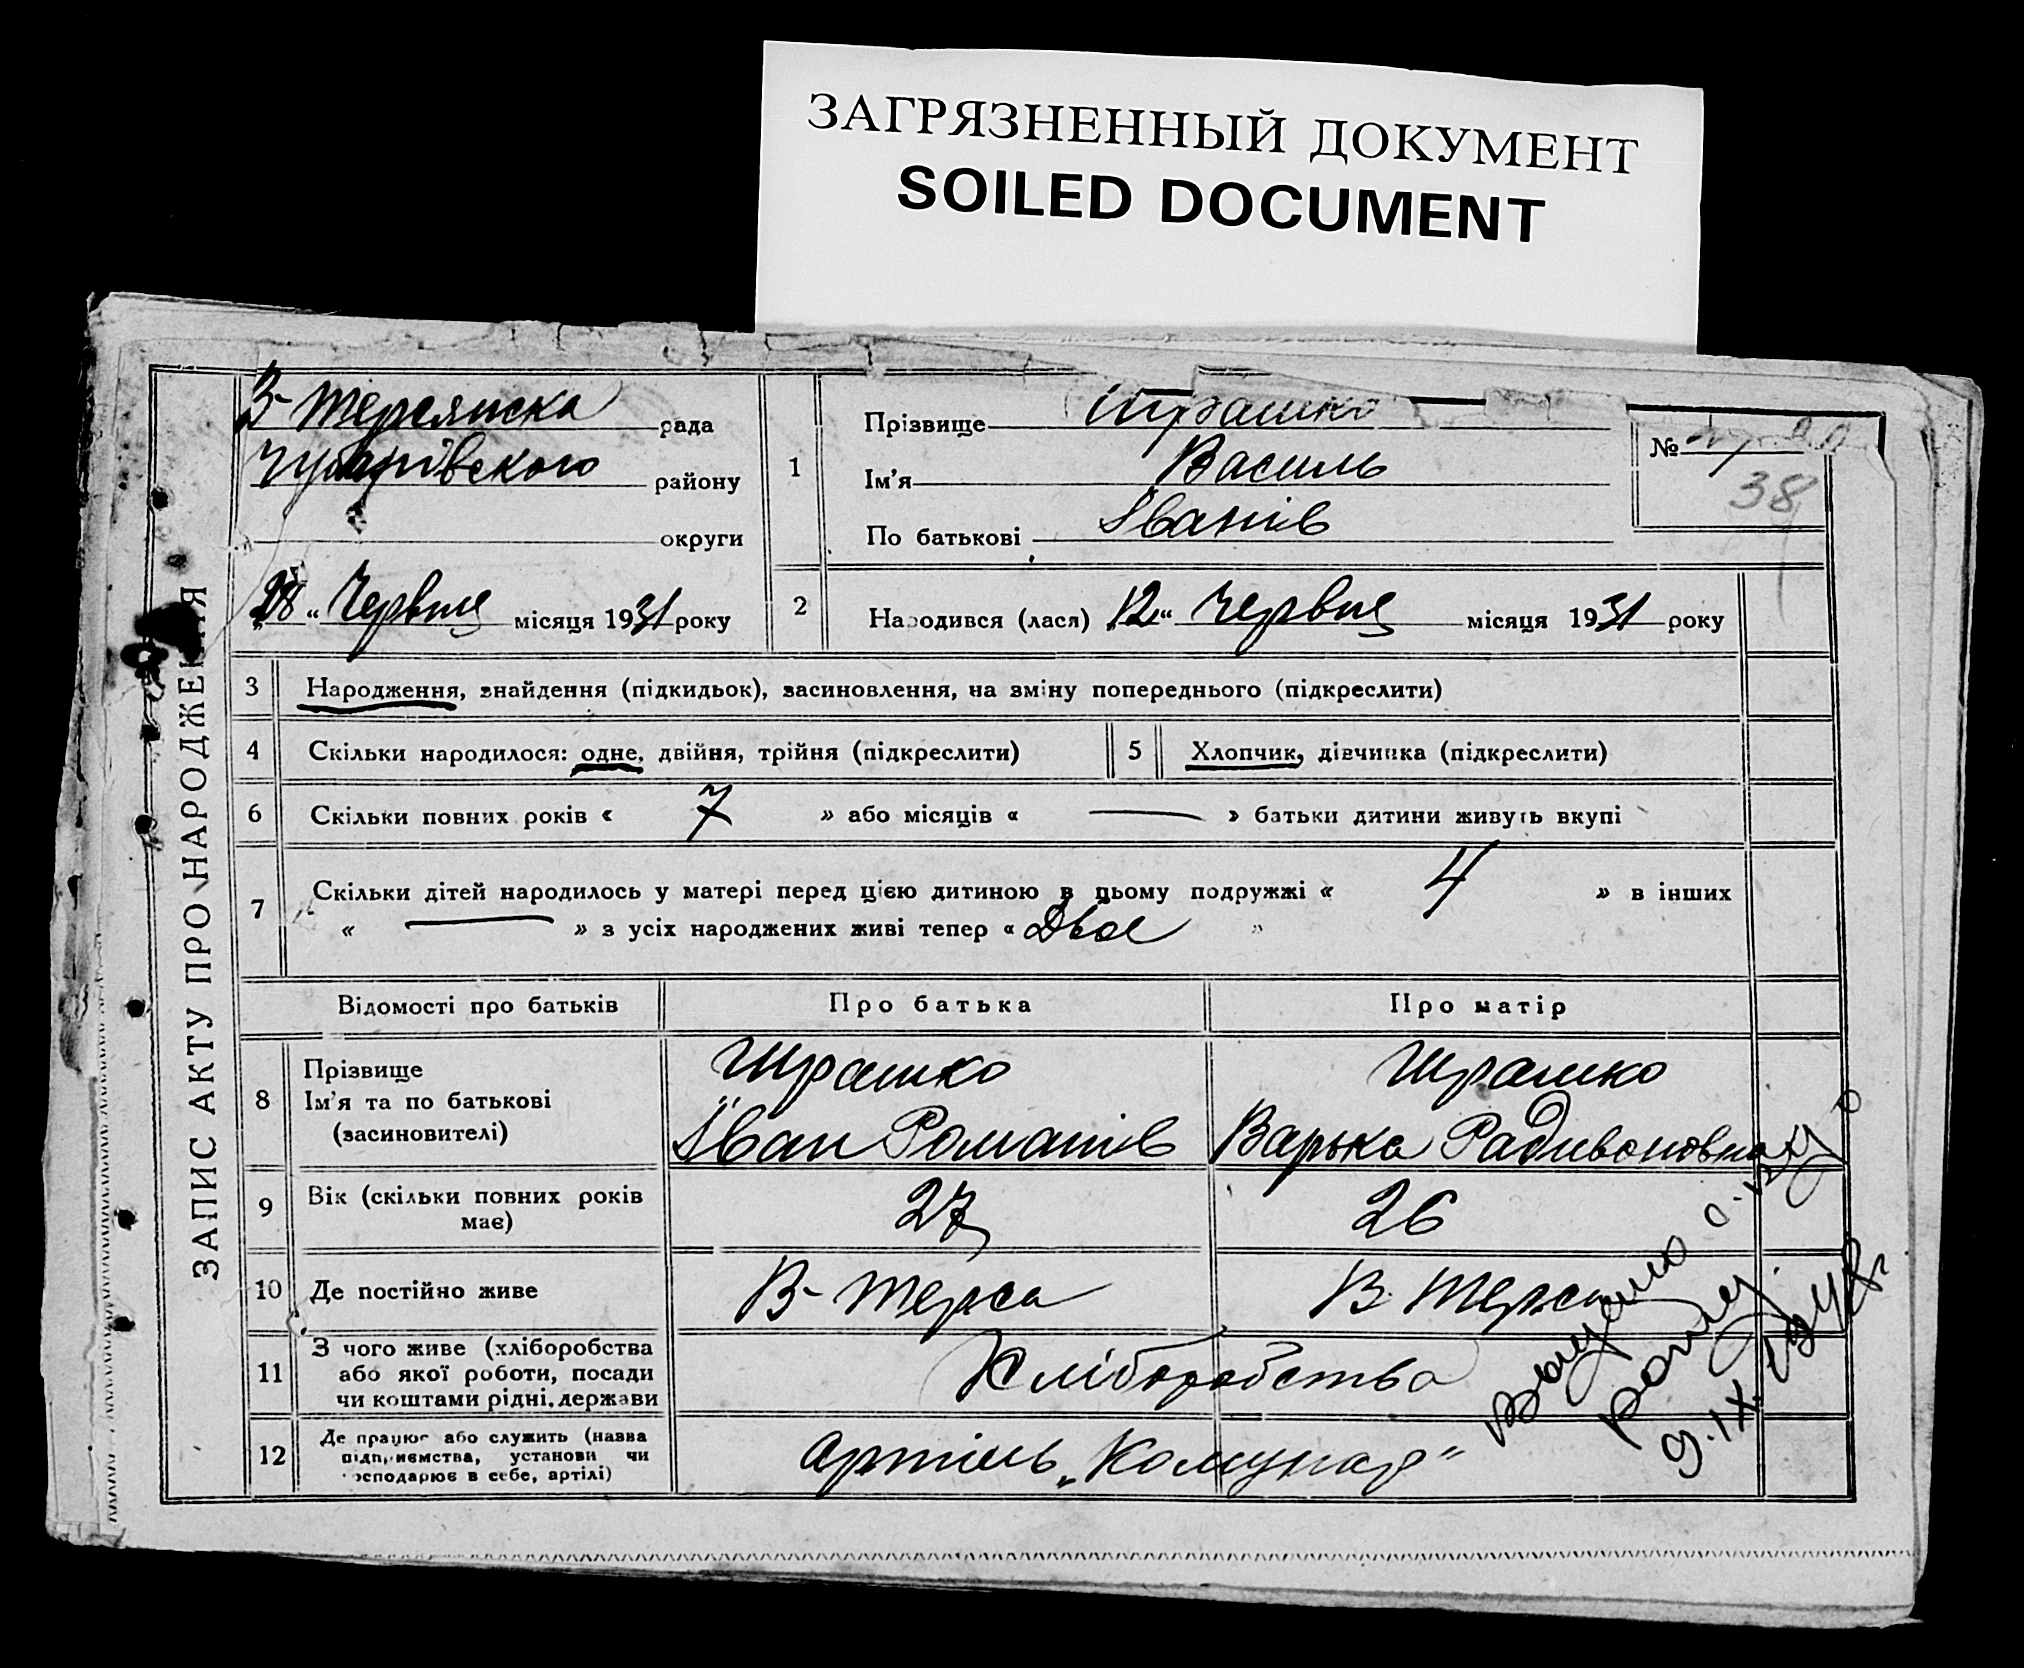 ЗАГРЯЗНЕННЫЙ ДОКУМЕНТ
SOILED DOCUMENT
ЗАПИС АКТУ ПРО НАРОДЖЕННЯ
В-Терсянска рада
Чубарівського району
округи
„18“ Червня місяця 1931 року
1
Прізвище Шрамко
Ім'я Василь
По батькові Іванів
№
38
2
Народився (лася) „12“ Червня місяця 1931 року
3 Народження, знайдення (підкидьок), засиновлення, на зміну попереднього (підкреслити)
4 Скільки народилося: одне, двійня, трійня (підкреслити)
5 Хлопчик, дівчинка (підкреслити)
6 Скільки повних років « 7 » або місяців « — » батьки дитини живуть вкупі
7 Скільки дітей народилось у матері перед цією дитиною в цьому подружжі « 4 » в інших
« — » з усіх народжених живі тепер « Двоє »
Відомості про батьків Про батька Про матір
8 Прізвище
Ім'я та по батькові
(засиновителі)
Шрамко
Іван Романів
Шрамко
Варька Радивоновна
9 Вік (скільки повних років
має)
27 26
10 Де постійно живе В-Терса В. Терса
11 З чого живе (хліборобства
або якої роботи, посади
чи коштами рідні, держави
Хліборобства
12 Де працює або служить (назва
підприємства, установи чи
господарює в себе, артілі)
артіль „Комунар“
9.IX.